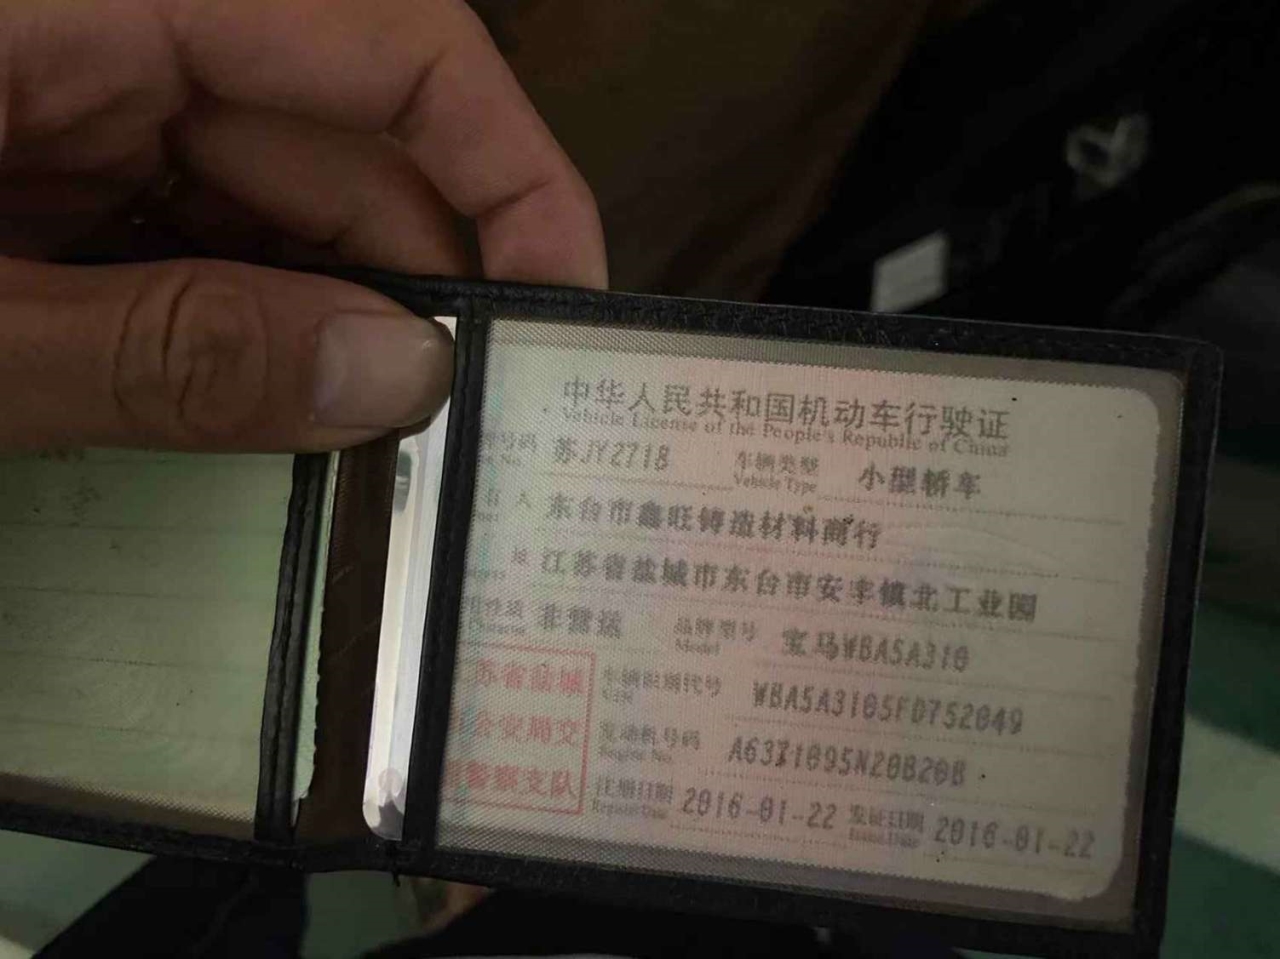 中华人民共和国机动车行驶证
Vehicle License of the People's Republic of China
号码 苏JY2718 车辆类型 小型轿车
Vehicle Type
人 东台市鑫旺铸造材料商行
江苏省盐城市东台市安丰镇北工业园
性质 非营运 品牌型号 宝马WBA5A310
Model
苏省盐城 车辆识别代号 WBA5A3105FD752049
VIN
公安局交 发动机号码 A63I1095N20B20B
Engine No.
警察支队 注册日期 2016-01-22 发证日期 2016-01-22
Register Date Issue Date